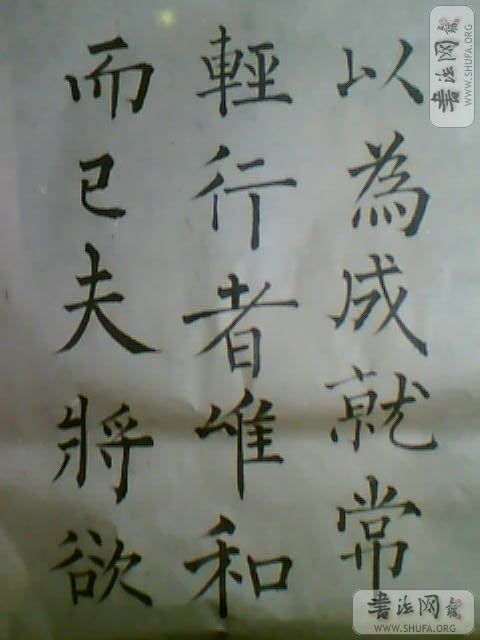 以為成就常
輕行者唯和
而已夫將欲
書法网
WWW.SHUFA.ORG
書法网
WWW.SHUFA.ORG